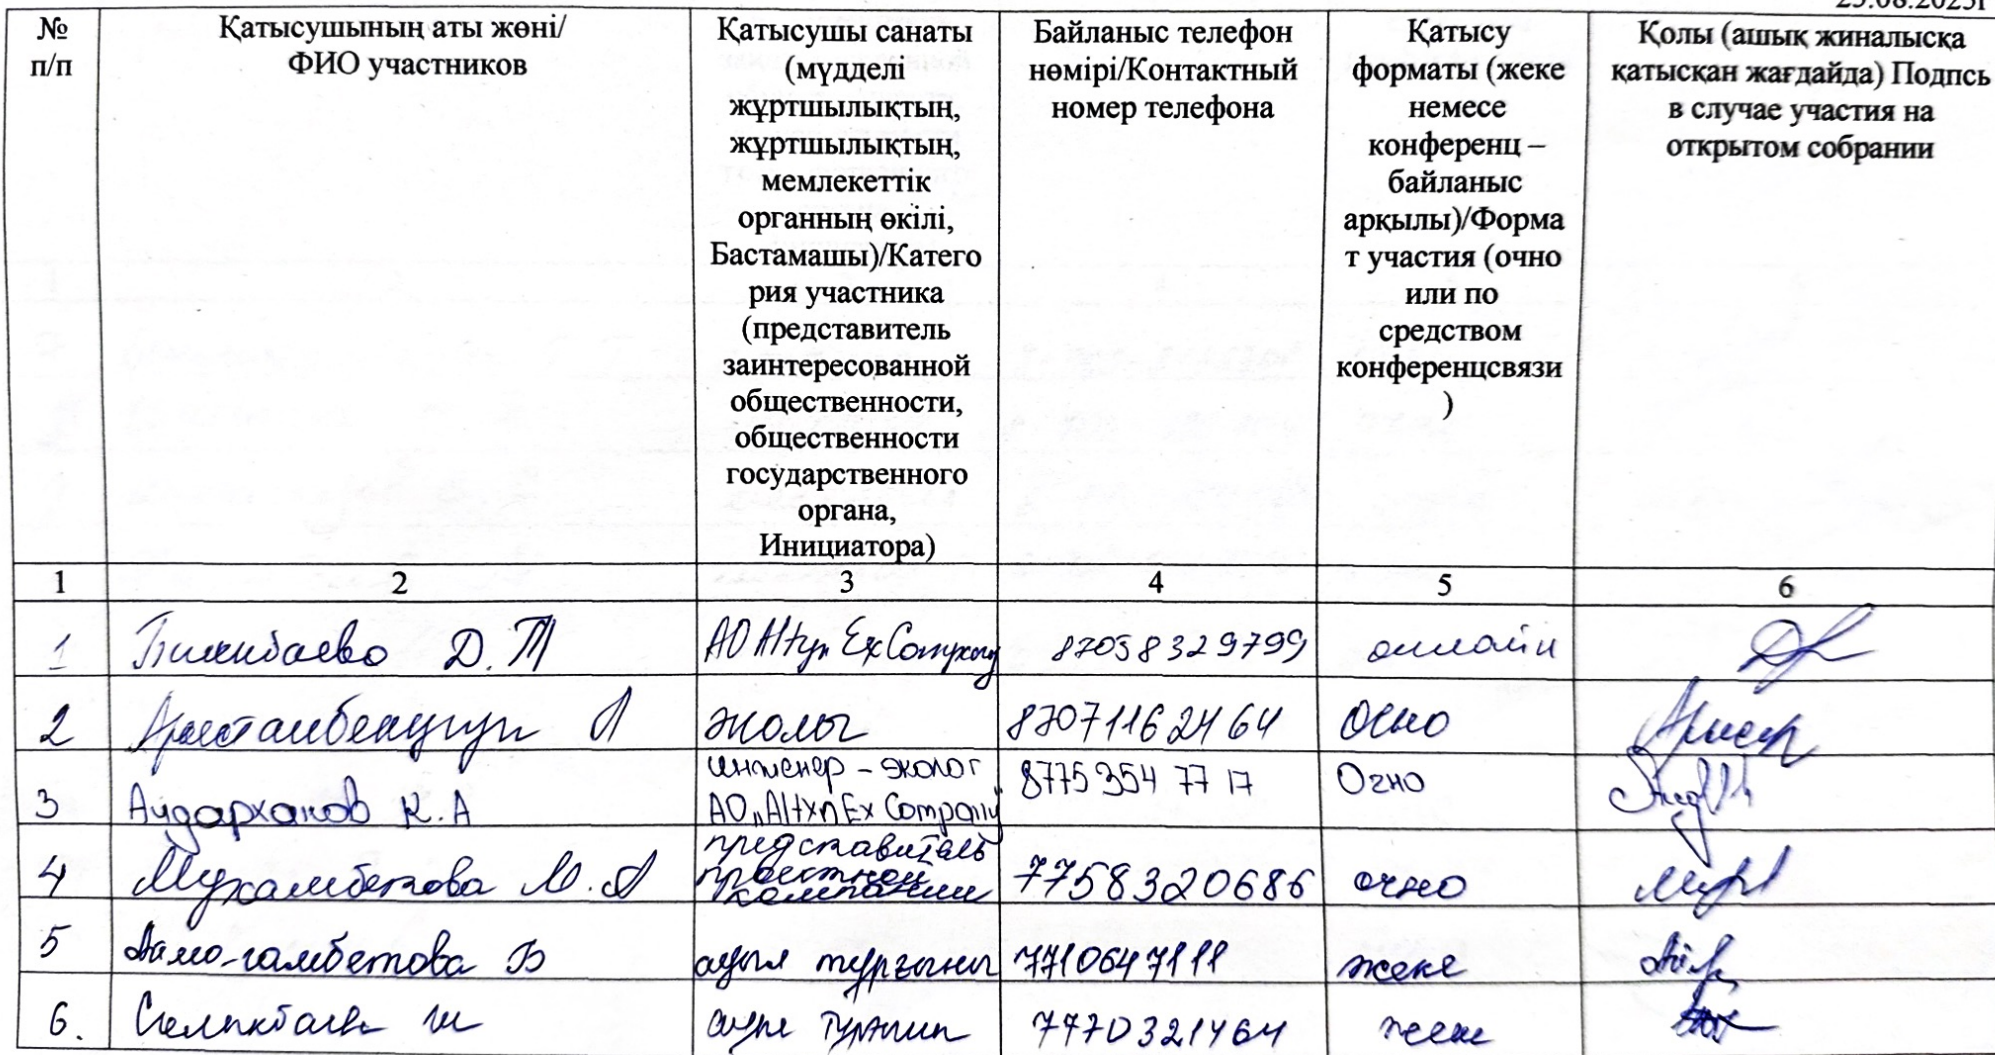 № п/п
Қатысушының аты жөні/
ФИО участников
Қатысушы санаты
(мүдделі
жұртшылықтың,
жұртшылықтың,
мемлекеттік
органның өкілі,
Бастамашы)/Катего
рия участника
(представитель
заинтересованной
общественности,
общественности
государственного
органа,
Инициатора)
Байланыс телефон
нөмірі/Контактный
номер телефона
Қатысу
форматы (жеке
немесе
конференц –
байланыс
арқылы)/Форма
т участия (очно
или по
средством
конференцсвязи
)
Қолы (ашық жиналысқа
қатысқан жағдайда) Подпсь
в случае участия на
открытом собрании
1 2 3 4 5 6
1 Д.Т АО Altyn Ex Company 87058329799 онлайн
2 А эколог 87071162464 Очно
3 Аударханов К.А инженер – эколог
АО "Altyn Ex Company" 8775 354 77 17 Очно
4 Мухамбетова М.А представитель
проектной
компании 7758320686 очно
5 Б ауыл тұрғыны 7710647111 жеке
6. Ш ауыл 7770321464 жеке